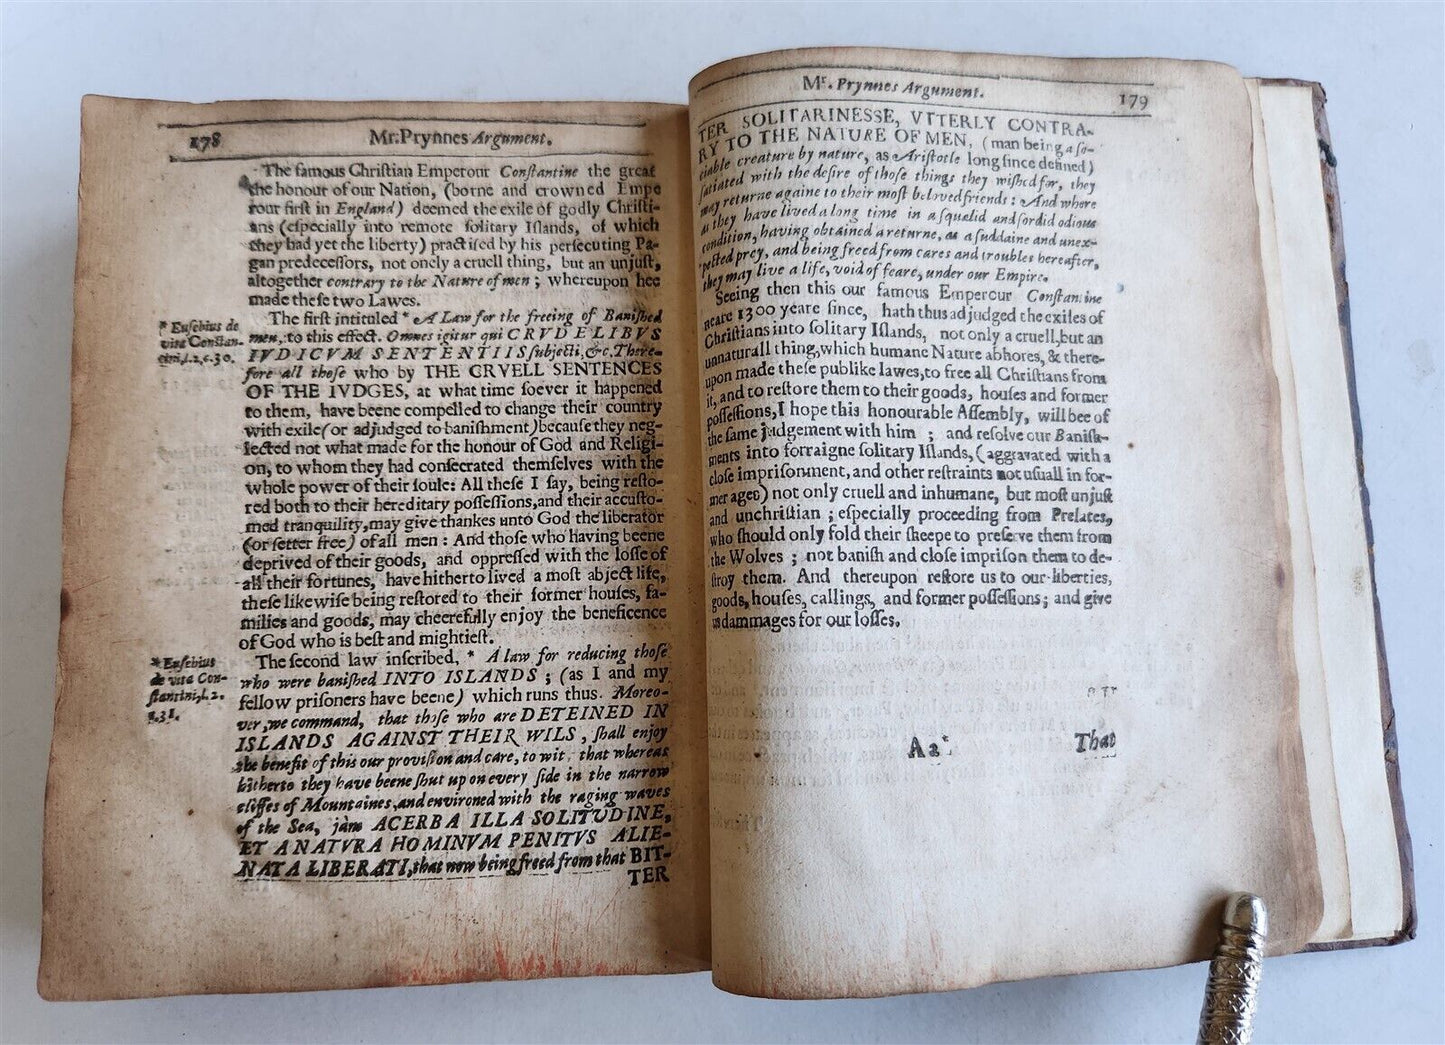 178
Mr. Prynnes Argument.
The famous Chriſtian Emperour Conſtantine the great
the honour of our Nation, (borne and crowned Empe
rour firſt in England) deemed the exile of godly Chriſti-
ans (eſpecially into remote ſolitary Iſlands, of which
they had yet the liberty) practiſed by his perſecuting Pa-
gan predeceſſors, not onely a cruell thing, but an unjuſt,
altogether contrary to the Nature of men ; whereupon hee
made theſe two Lawes.
The firſt intituled * A Law for the freeing of Baniſhed
men, to this effect. Omnes igitur qui CRVDELIBVS
IVDICVM SENTENTIIS ſubjecti, &c. There-
fore all thoſe who by THE CRVELL SENTENCES
OF THE IVDGES, at what time ſoever it happened
to them, have beene compelled to change their country
with exile (or adjudged to baniſhment) becauſe they neg-
lected not what made for the honour of God and Religi-
on, to whom they had conſecrated themſelves with the
whole power of their ſoule: All theſe I ſay, being reſto-
red both to their hereditary poſſeſſions, and their accuſto-
med tranquility, may give thankes unto God the liberator
(or ſetter free) of all men : And thoſe who having beene
deprived of their goods, and oppreſſed with the loſſe of
all their fortunes, have hitherto lived a moſt abject life,
theſe likewiſe being reſtored to their former houſes, fa-
milies and goods, may cheerefully enjoy the beneficence
of God who is beſt and mightieſt.
The ſecond law inſcribed, * A law for reducing thoſe
who were baniſhed INTO ISLANDS ; (as I and my
fellow priſoners have beene) which runs thus. Moreo-
ver, we command, that thoſe who are DETEINED IN
ISLANDS AGAINST THEIR WILS, ſhall enjoy
the benefit of this our proviſion and care, to wit, that whereas
hitherto they have beene ſhut up on every ſide in the narrow
cliffes of Mountaines, and environed with the raging waves
of the Sea, jàm ACERBA ILLA SOLITUDINE,
ET A NATVRA HOMINVM PENITVS ALIE-
NATA LIBERATI, that now being freed from that BIT-
TER
* Euſebius de
vita Conſtan-
tini, l.2.c.30.
* Euſebius
de vita Con-
ſtantini, l. 2.
c.31.
Mr. Prynnes Argument.
179
TER SOLITARINESSE, VTTERLY CONTRA-
RY TO THE NATURE OF MEN, (man being a ſo-
ciable creature by nature, as Ariſtotle long ſince defined)
ſatiated with the deſire of thoſe things they wiſhed for, they
may returne againe to their moſt beloved friends : And where
as they have lived a long time in a ſqualid and ſordid odious
condition, having obtained a returne, as a ſuddaine and unex-
pected prey, and being freed from cares and troubles hereafter,
they may live a life, void of feare, under our Empire.
Seeing then this our famous Emperour Conſtantine
neare 1300 yeare ſince, hath thus adjudged the exiles of
Chriſtians into ſolitary Iſlands, not only a cruell, but an
unnaturall thing, which humane Nature abhores, & there-
upon made theſe publike lawes, to free all Chriſtians from
it, and to reſtore them to their goods, houſes and former
poſſeſſions, I hope this honourable Aſſembly, will bee of
the ſame judgement with him ; and reſolve our Baniſh-
ments into forraigne ſolitary Iſlands, (aggravated with a
cloſe impriſonment, and other reſtraints not uſuall in for-
mer ages) not only cruell and inhumane, but moſt unjuſt
and unchriſtian ; eſpecially proceeding from Prelates,
who ſhould only fold their ſheepe to preſerve them from
the Wolves ; not baniſh and cloſe impriſon them to de-
ſtroy them. And thereupon reſtore us to our liberties,
goods, houſes, callings, and former poſſeſſions; and give
us dammages for our loſſes.
Aa
That